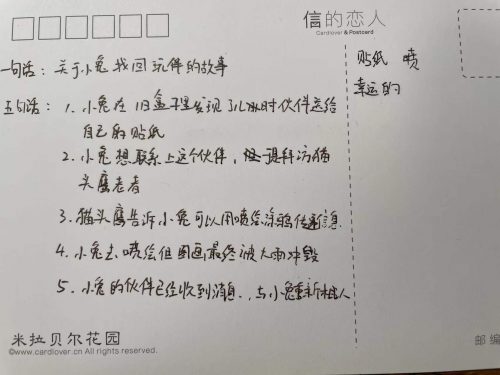 信的恋人
Cardlover & Postcard
一句话：关于小兔找回玩伴的故事
贴纸 喷
幸运的
五句话：1. 小兔在旧盒子里发现了儿时伙伴送给
自己的贴纸
2. 小兔想联系上这个伙伴，拜访猫
头鹰老者
3. 猫头鹰告诉小兔可以用喷绘涂鸦传递消息
4. 小兔去喷绘但图画最终被大雨冲毁
5. 小兔的伙伴已经收到消息，与小兔重新相认
米拉贝尔花园
©www.cardlover.cn All rights reserved.
邮编